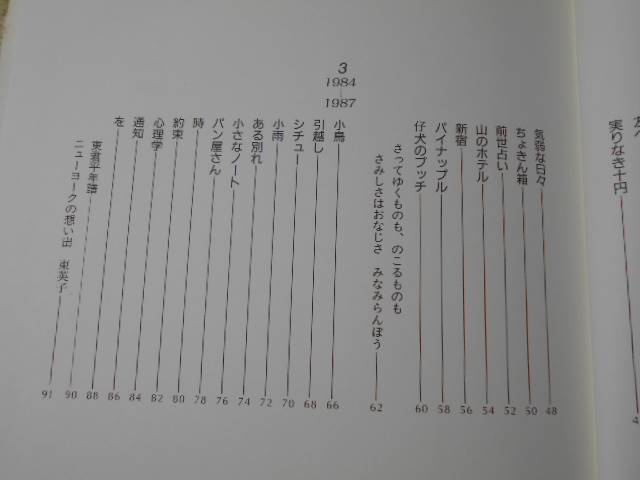 実りなき十円
気弱な日々 48
ちょきん箱 50
前世占い 52
山のホテル 54
新宿 56
パイナップル 58
仔犬のプッチ 60
さってゆくものも、のこるものも
さみしさはおなじさ みなみらんぼう 62
3
1984
|
1987
小鳥 66
引越し 68
シチュー 70
小雨 72
ある別れ 74
小さなノート 76
パン屋さん 78
時 80
約束 82
心理学 84
通知 86
を 88
東君平年譜 90
ニューヨークの想い出 東英子 91